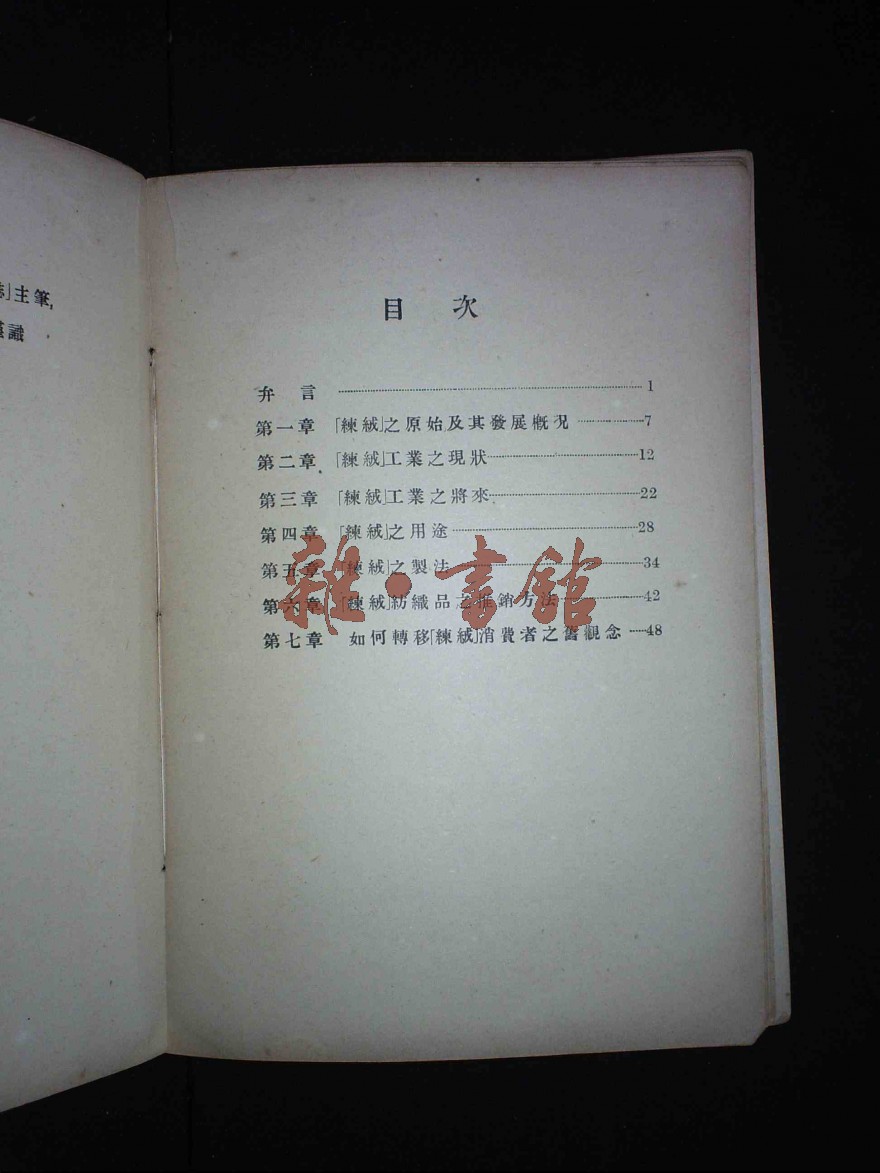 」主筆,
識
目次
弁言 1
第一章 「練絨」之原始及其發展概況 7
第二章 「練絨」工業之現狀 12
第三章 「練絨」工業之將來 22
第四章 「練絨」之用途 28
第五章 「練絨」之製法 34
第六章 「練絨」紡織品之推銷方法 42
第七章 如何轉移「練絨」消費者之舊觀念 48
雜·書館